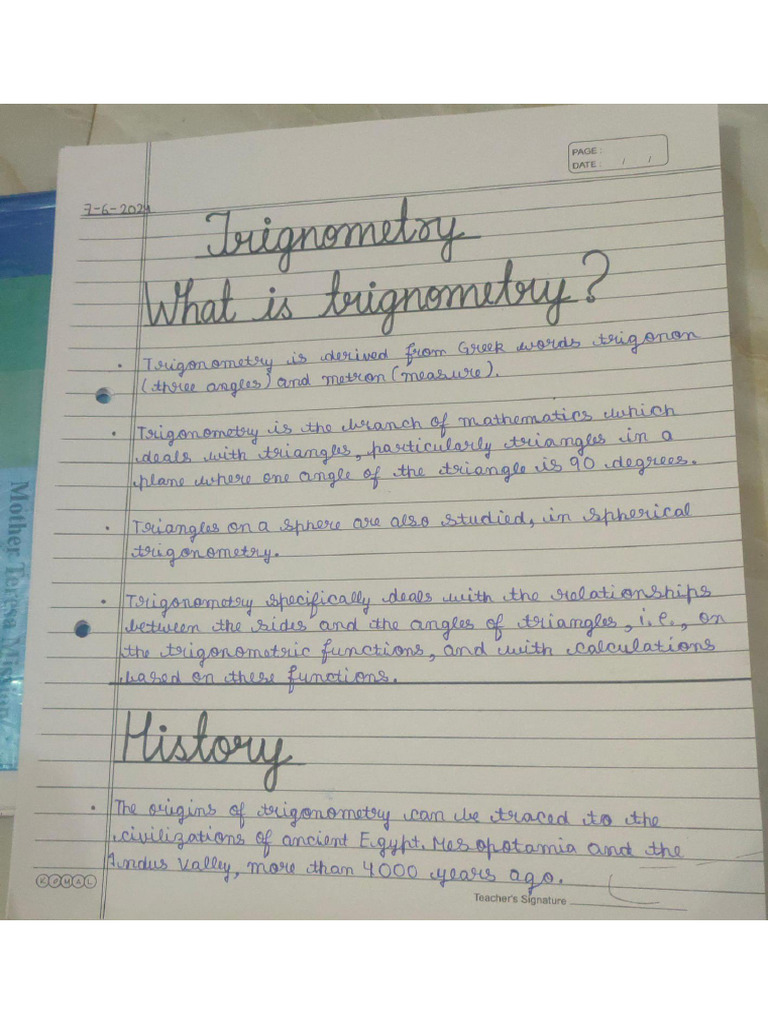 PAGE :
DATE : / /
7-6-2021
Trignometry
What is trignometry?
• Trigonometry is derived from Greek words trigonon
(three angles) and metron (measure).
• Trigonometry is the branch of mathematics which
deals with triangles, particularly triangles in a
plane where one angle of the triangle is 90 degrees.
• Triangles on a sphere are also studied, in spherical
trigonometry.
• Trigonometry specifically deals with the relationships
between the sides and the angles of triangles, i.e., on
the trigonometric functions, and with calculations
based on these functions.
History
• The origins of trigonometry can be traced to the
civilizations of ancient Egypt. Mesopotamia and the
Indus Valley, more than 4000 years ago.
KOMAL
Teacher's Signature
Mother Teresa